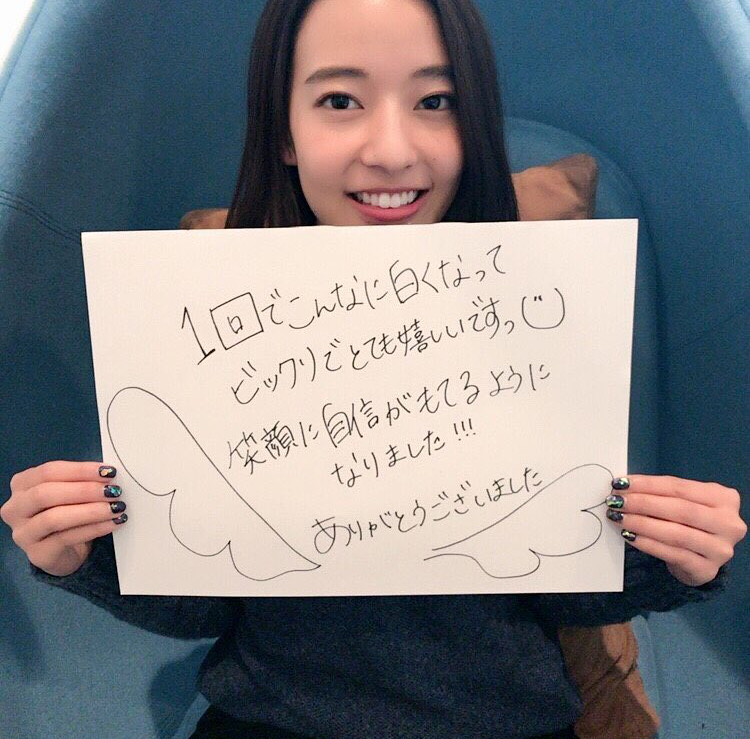 1回でこんなに白くなって
ビックリでとても嬉しいですっ
笑顔に自信がもてるように
なりました!!!
ありがとうございました